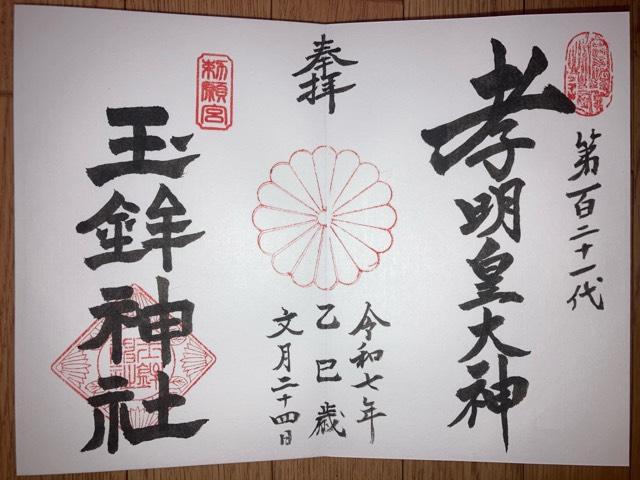 第百二十一代
孝明皇大神
奉拝
令和七年
乙巳歳
文月二十四日
勅願宮
玉鉾神社